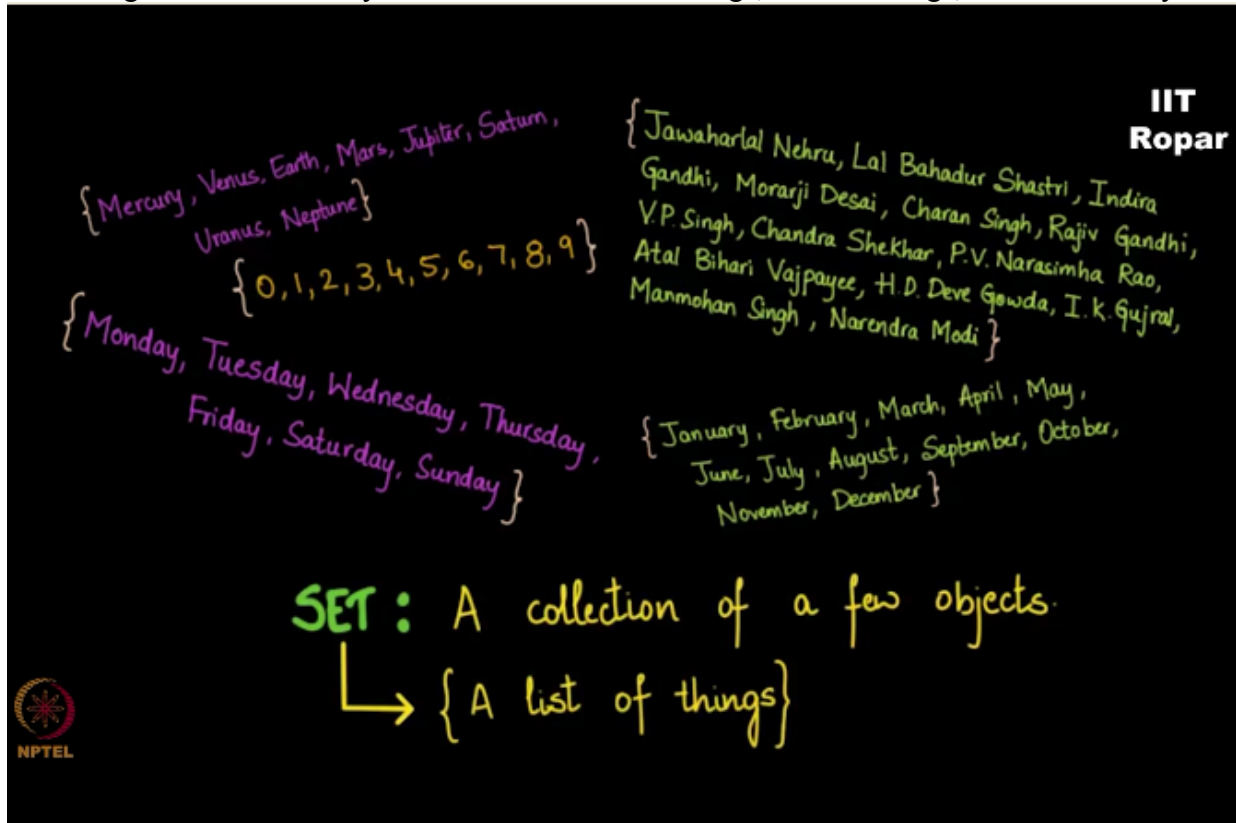 IIT
Ropar
{Mercury, Venus, Earth, Mars, Jupiter, Saturn,
Uranus, Neptune}
{0, 1, 2, 3, 4, 5, 6, 7, 8, 9}
{Monday, Tuesday, Wednesday, Thursday,
Friday, Saturday, Sunday}
{Jawaharlal Nehru, Lal Bahadur Shastri, Indira
Gandhi, Morarji Desai, Charan Singh, Rajiv Gandhi,
V.P. Singh, Chandra Shekhar, P.V. Narasimha Rao,
Atal Bihari Vajpayee, H.D. Deve Gowda, I.K. Gujral,
Manmohan Singh, Narendra Modi}
{January, February, March, April, May,
June, July, August, September, October,
November, December}
SET: A collection of a few objects.
{A list of things}
NPTEL